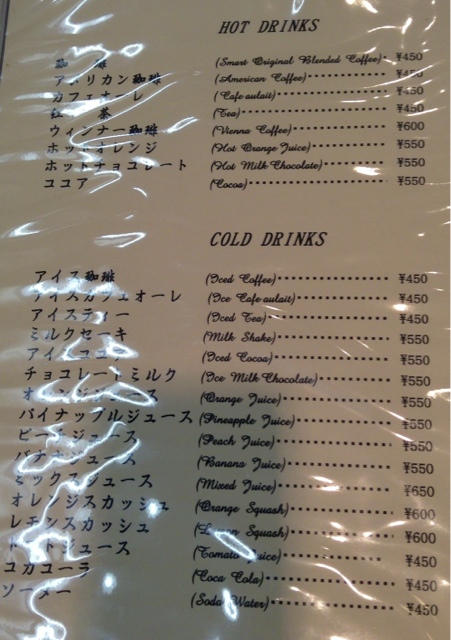 HOT DRINKS
珈琲 (Smart Original Blended Coffee) ¥450
アメリカン珈琲 (American Coffee) ¥450
カフェオーレ (Cafe-aulait) ¥450
紅茶 (Tea) ¥450
ウィンナー珈琲 (Vienna Coffee) ¥600
ホットオレンジ (Hot Orange Juice) ¥550
ホットチョコレート (Hot Milk Chocolate) ¥550
ココア (Cocoa) ¥550
COLD DRINKS
アイス珈琲 (Iced Coffee) ¥450
アイスカフェオーレ (Ice Cafe-aulait) ¥450
アイスティー (Iced Tea) ¥450
ミルクセーキ (Milk Shake) ¥550
アイスココア (Iced Cocoa) ¥550
チョコレートミルク (Ice Milk Chocolate) ¥550
オレンジジュース (Orange Juice) ¥550
パイナップルジュース (Pineapple Juice) ¥550
ピーチジュース (Peach Juice) ¥550
バナナジュース (Banana Juice) ¥550
ミックスジュース (Mixed Juice) ¥650
オレンジスカッシュ (Orange Squash) ¥600
レモンスカッシュ (Lemon Squash) ¥600
トマトジュース (Tomato Juice) ¥450
コカコーラ (Coca Cola) ¥450
ソーダー (Soda Water) ¥450